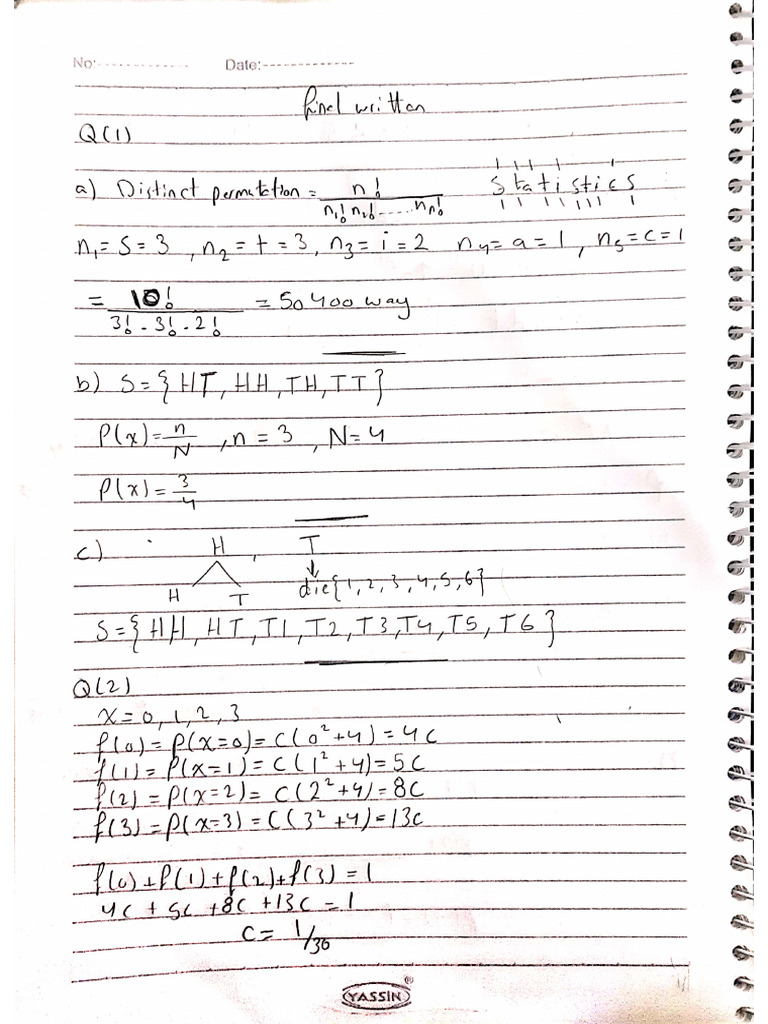 No:-------------- Date:-------------
final written
Q(1)
a) Distinct permutation = n! / n₁! n₂! ...... nₙ! Statistics
n₁ = S = 3 , n₂ = t = 3 , n₃ = i = 2 n₄ = a = 1 , n₅ = c = 1
= 10! / 3! - 3! - 2! = 50400 way
b) S = { HT , HH , TH , TT }
P(x) = n/N , n = 3 , N = 4
P(x) = 3/4
c) H , T
H T die{1,2,3,4,5,6}
S = { HH , HT , T1 , T2 , T3 , T4 , T5 , T6 }
Q(2)
X = 0, 1, 2, 3
f(0) = P(x=0) = C(0²+4) = 4C
f(1) = P(x=1) = C(1²+4) = 5C
f(2) = P(x=2) = C(2²+4) = 8C
f(3) = P(x=3) = C(3²+4) = 13C
f(0) + f(1) + f(2) + f(3) = 1
4C + 5C + 8C + 13C = 1
C = 1/30
YASSIN®